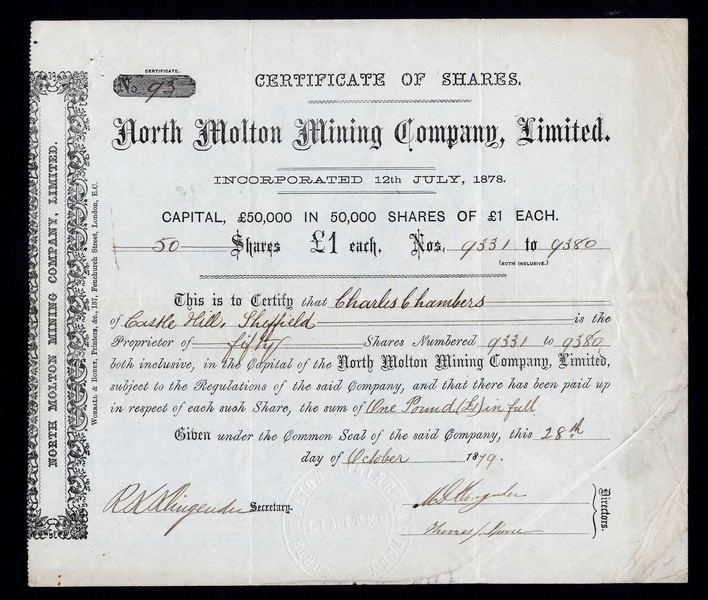 CERTIFICATE.
No. 93
CERTIFICATE OF SHARES.
North Molton Mining Company, Limited.
INCORPORATED 12th JULY, 1878.
CAPITAL, £50,000 IN 50,000 SHARES OF £1 EACH.
50 Shares £1 each. Nos. 9331 to 9380
(BOTH INCLUSIVE.)
This is to Certify that Charles Chambers
of Castle Hill, Sheffield is the
Proprietor of fifty Shares Numbered 9331 to 9380
both inclusive, in the Capital of the North Molton Mining Company, Limited,
subject to the Regulations of the said Company, and that there has been paid up
in respect of each such Share, the sum of One Pound (£1) in full
Given under the Common Seal of the said Company, this 28th
day of October 1879.
R K Klingender Secretary.
Thomas
Directors.
NORTH MOLTON MINING COMPANY, LIMITED.
WORRALL & ROBEY, Printers, &c., 137, Fenchurch Street, London, E.C.